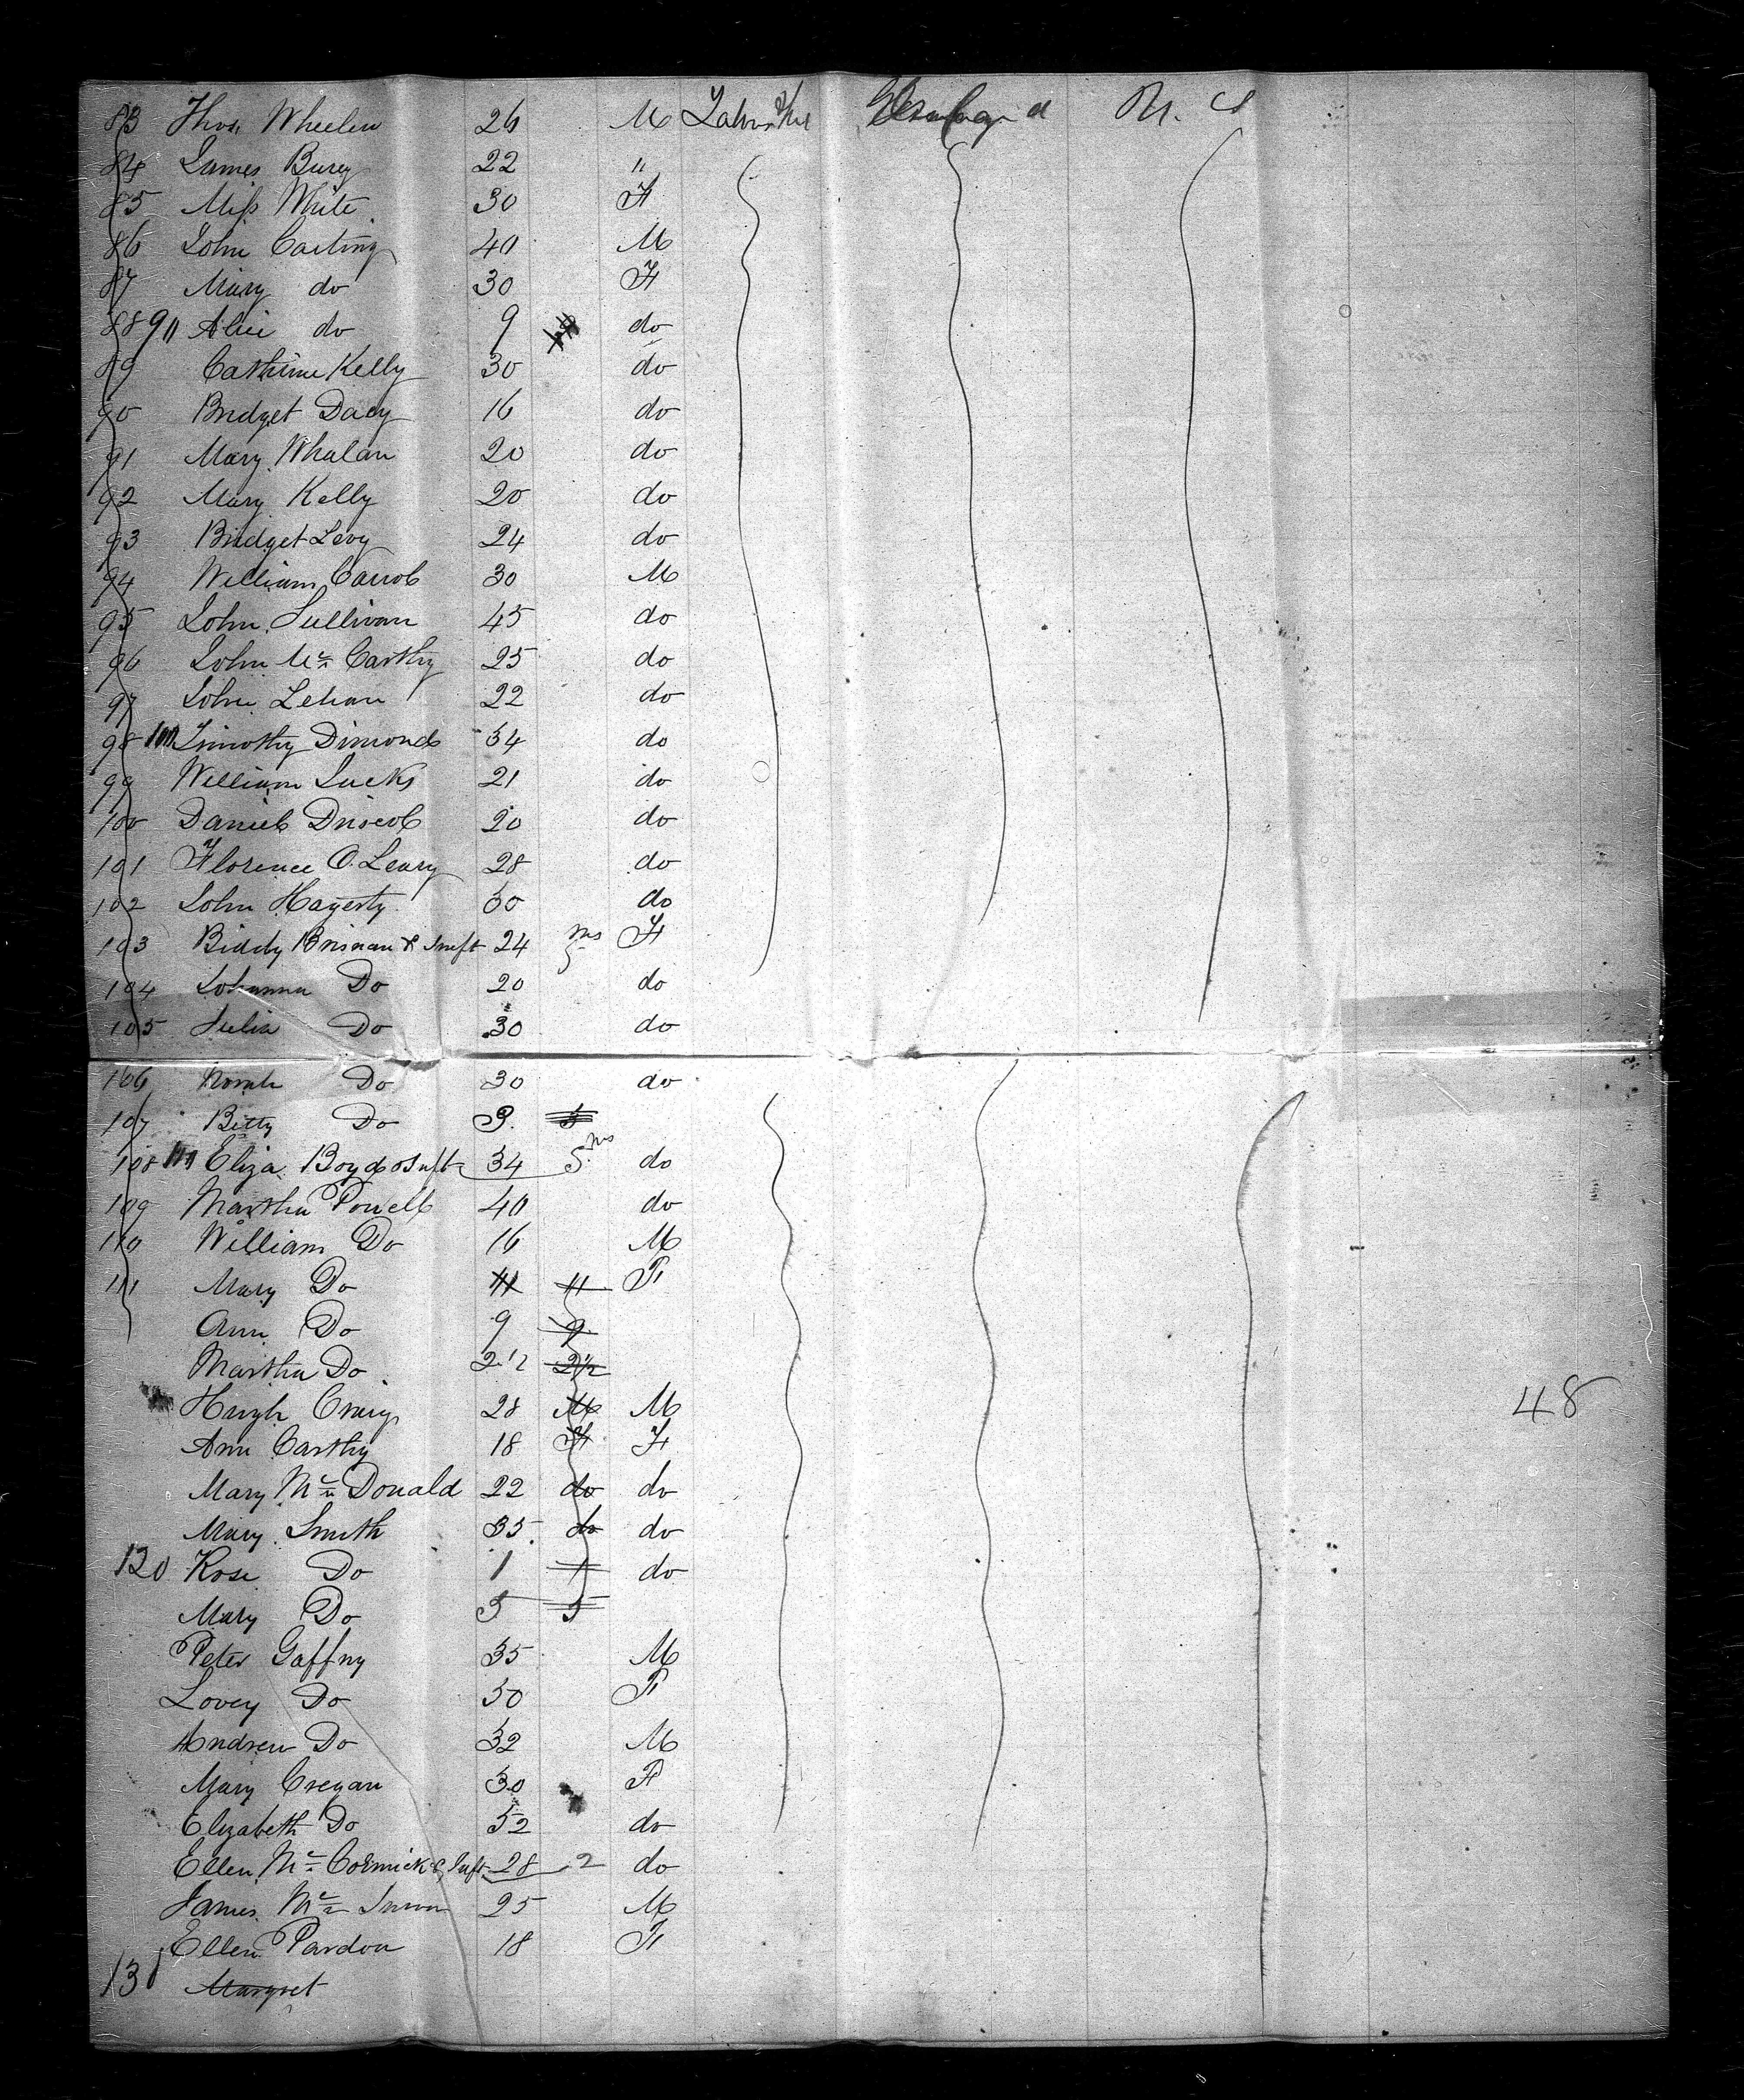 83 Thos. Wheelen 26 M
84 James Burey 22 "
85 Miss White 30 F
86 John Carting 40 M
87 Mary do 30 F
88 90 Alice do 9 do
89 Catherine Kelly 30 do
90 Bridget Dacy 16 do
91 Mary Whalan 20 do
92 Mary Kelly 20 do
93 Bridget Levy 24 do
94 William Carrol 30 M
95 John Sullivan 45 do
96 John Mc Carthy 25 do
97 John Lehan 22 do
98 100 Timothy Dimond 34 do
99 William Sucks 21 do
100 Daniel Driscol 20 do
101 Florence O. Leary 28 do
102 John Hagerty 30 do
103 Biddy Brisnan & Inft 24 5 ms F
104 Johanna Do 20 do
105 Julia Do 30 do
106 Norah Do 30 do
107 Betty Do 3
108 110 Eliza Boyd & Inft 34 5 ms do
109 Martha Powell 40 do
110 William Do 16 M
111 Mary Do 11 11 F
Ann Do 9 9
Martha Do 2 1/2 2 1/2
Hugh Craig 28 M M
Ann Carthy 18 F F
Mary Mc Donald 22 do do
Mary Smith 35 do do
120 Rose Do 1 1 do
Mary Do 5 5
Peter Gaffny 35 M
Lovey Do 30 F
Andrew Do 32 M
Mary Cregan 30 F
Elizabeth Do 52 do
Ellen Mc Cormick & Inft 28 2 do
James Mc 25 M
Ellen Pardon 18 F
130 Margret
48